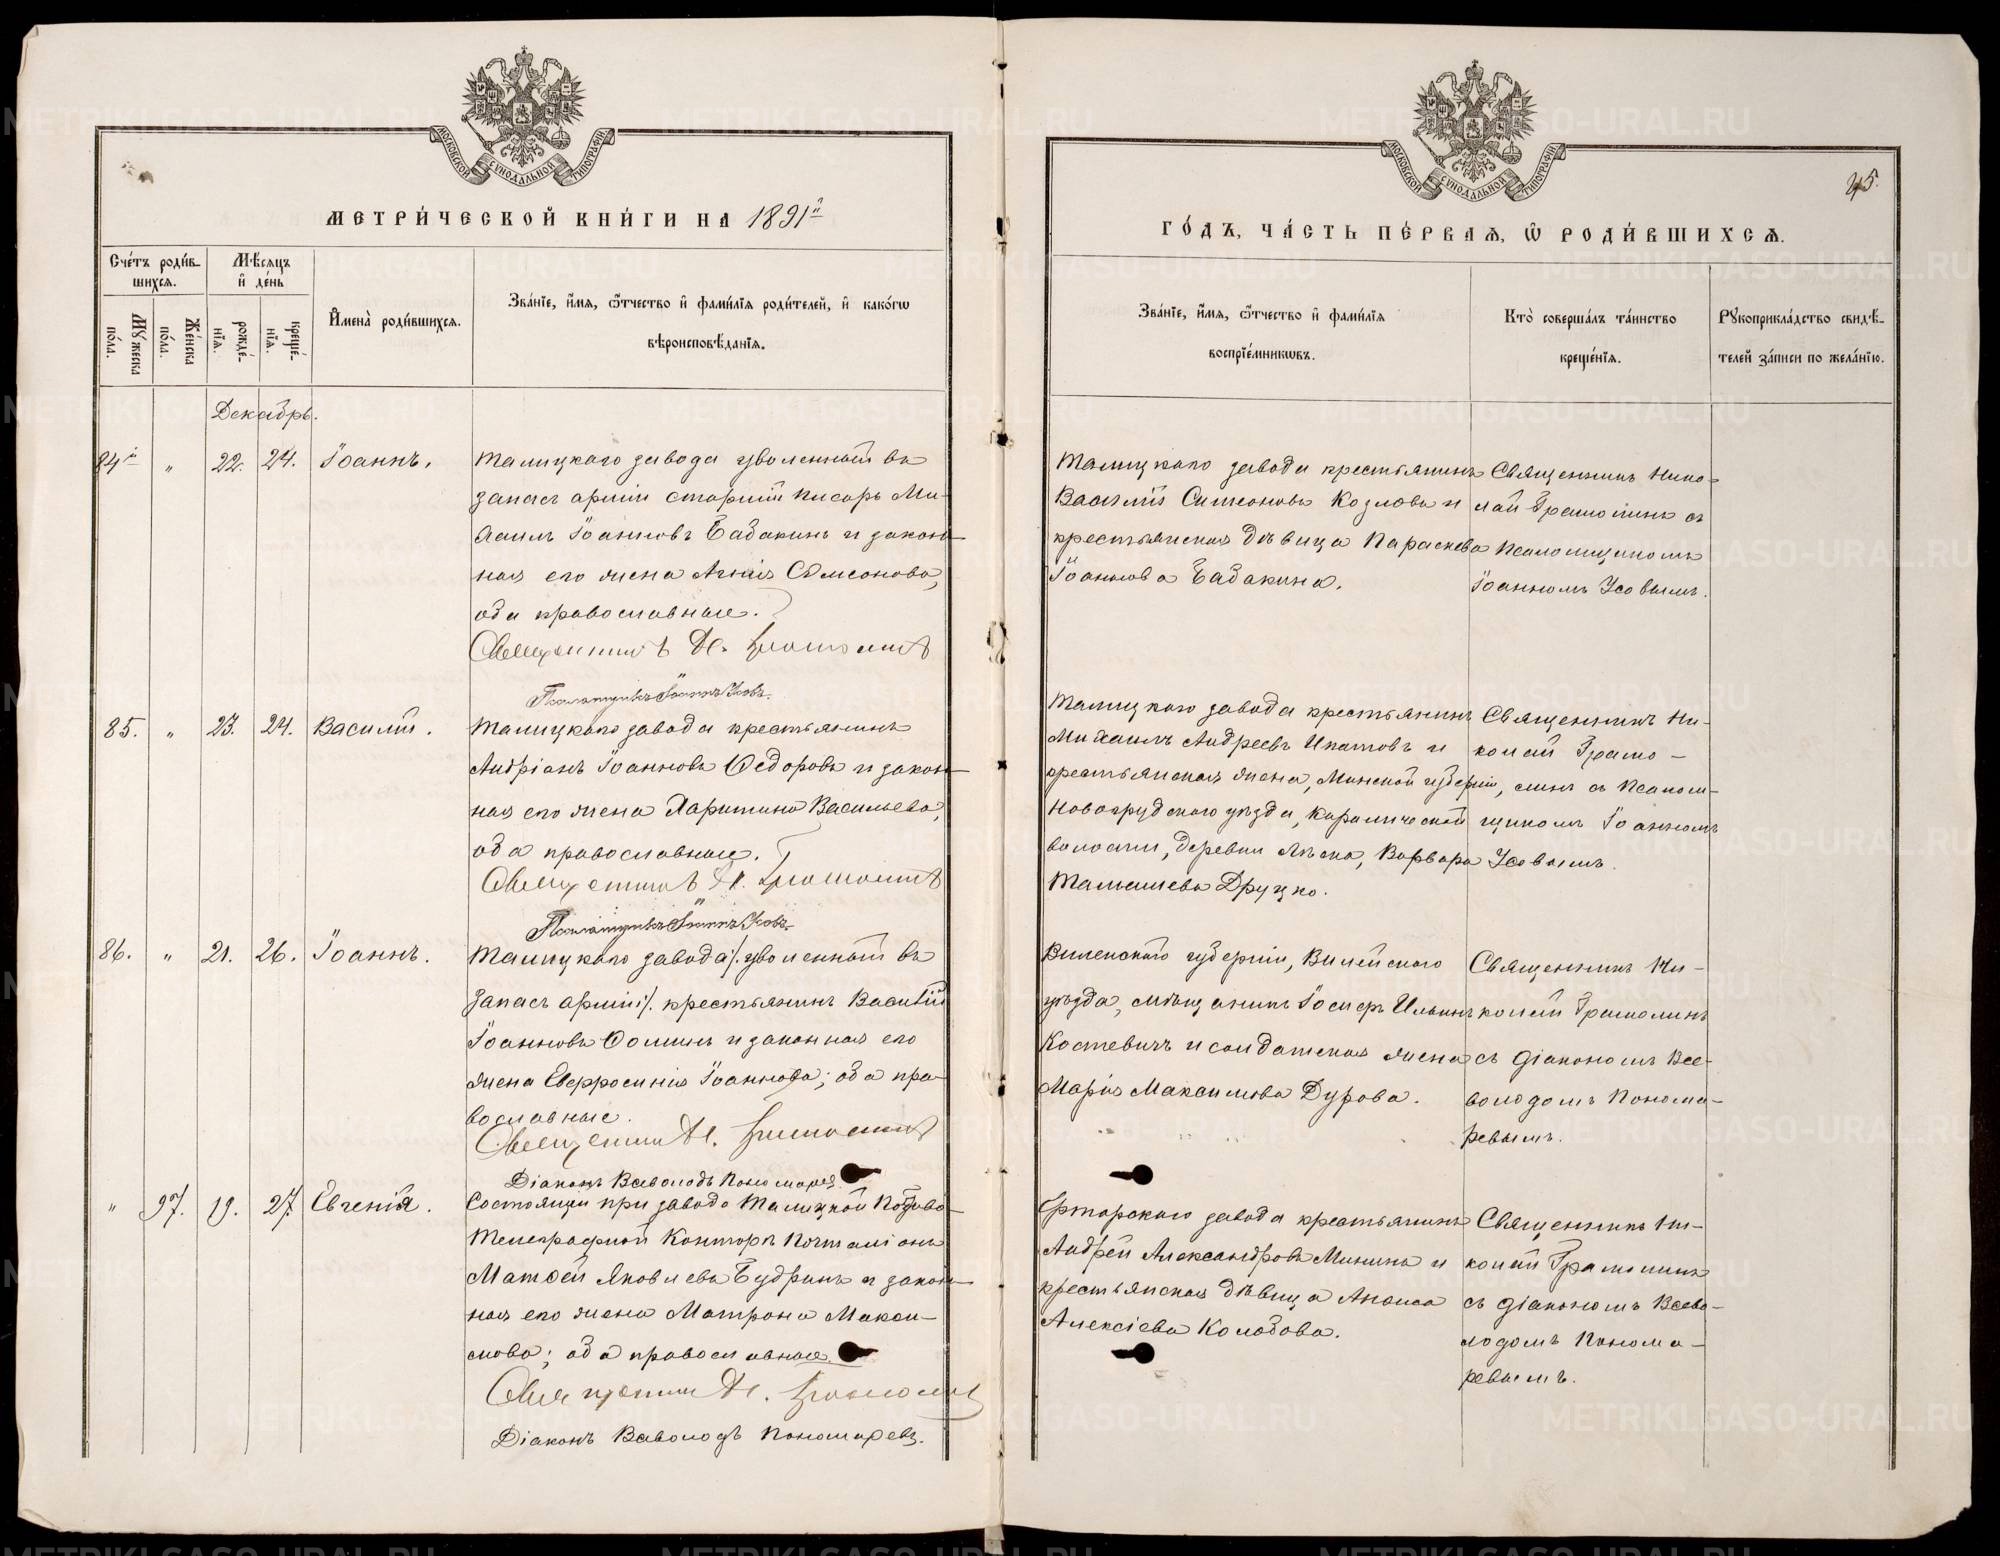 МЕТРИ́ЧЕСКОЙ КНИ́ГИ НА 1891й
Сче́тъ роди́в-
шихся.
Мѣ́сяцъ
и҆ де́нь
Му́жеска
по́ла.
Же́нска
по́ла.
рожде́-
нїѧ.
креще́-
нїѧ.
И҆мена̀ роди́вшихсѧ.
Зва́нїе, и҆́мѧ, ѻ҆́тчество и҆ фами́лїѧ роди́телей, и҆ како́гѡ
вѣроисповѣ́данїѧ.
Декабрь.
84й " 22. 24. Іоаннъ.
Талицкаго завода уволенный въ
запасъ арміи старшій писарь Ми-
хаилъ Іоанновъ Бабакинъ и закон-
ная его жена Агнія Симеонова,
оба православные.
Священникъ Н. Грамолинъ
Псаломщикъ Іоаннъ Усовъ.
85. " 23. 24. Василій.
Талицкаго завода крестьянинъ
Андріанъ Іоанновъ Ѳедоровъ и закон-
ная его жена Харитина Васильева,
оба православные.
Священникъ Н. Грамолинъ
Псаломщикъ Іоаннъ Усовъ.
86. " 21. 26. Іоаннъ.
Талицкаго завода /:уволенный въ
запасъ арміи:/ крестьянинъ Василій
Іоанновъ Ѳоминъ и законная его
жена Евфросинія Іоаннова; оба пра-
вославные.
Священникъ Н. Грамолинъ
Діаконъ Всеволодъ Пономаревъ
" 97. 19. 27. Евгенія.
Состоящій при заводѣ Талицкой Почтово-
Телеграфной Конторѣ почталіонъ
Матѳей Яковлевъ Будринъ и закон-
ная его жена Матрона Макси-
мова; оба православные.
Священникъ Н. Грамолинъ
Діаконъ Всеволодъ Пономаревъ.
МОСКОВСКОЙ СѴНОДАЛЬНОЙ ТИПОГРАФІИ
45.
ГО́ДЪ, ЧА́СТЬ ПЕ́РВАѦ, Ѡ҆ РОДИ́ВШИХСѦ.
Зва́нїе, и҆́мѧ, ѻ҆́тчество и҆ фами́лїѧ
воспрїе́мникѡвъ.
Кто̀ соверша́лъ та́инство
креще́нїѧ.
Рꙋкоприкла́дство свидѣ́-
телей за́писи по жела́нїю.
Талицкаго завода крестьянинъ
Василій Симеоновъ Козловъ и
крестьянская дѣвица Параскева
Іоаннова Бабакина.
Священникъ Нико-
лай Грамолинъ съ
псаломщикомъ
Іоанномъ Усовымъ.
Талицкаго завода крестьянинъ
Михаилъ Андреевъ Ипатовъ и
крестьянская жена, Минской губерніи,
Новогрудскаго уѣзда, Кореличской
волости, деревни Лѣска, Варвара
Друцко.
Священникъ Ни-
колай Грамо-
линъ съ псалом-
щикомъ Іоанномъ
Усовымъ.
Виленской губерніи, Вилейскаго
уѣзда, мѣщанинъ Іосифъ Ильинъ
Костевичъ и солдатская жена
Марія Максимова Дурова.
Священникъ Ни-
колай Грамолинъ
съ діакономъ Все-
володомъ Понома-
ревымъ.
Ертарскаго завода крестьянинъ
Андрей Александровъ Мининъ и
крестьянская дѣвица Анѳиса
Алексіева Колобова.
Священникъ Ни-
колай Грамолинъ
съ діакономъ Всево-
лодомъ Понома-
ревымъ.
METRIKI.GASO-URAL.RU